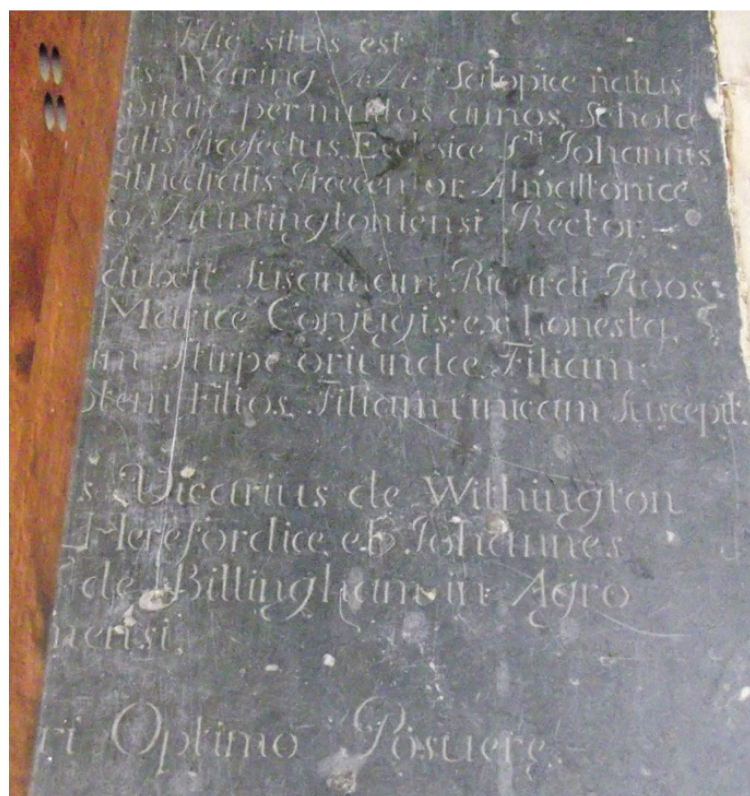 Hic situs est
is Waring A: M: Salopiæ natus
vitate per multos annos, Scholæ
alis Præfectus, Ecclesiæ S.ti Johannis
athedralis Præcentor, Almaltoniæ
o Huntingtoniensi Rector.
duxit Susannam, Ricardi Roos;
Mariæ Conjugis; ex honesta,
am Stirpe oriundæ, Filiam;
ptem Filios, Filiam unicam Suscepit.
s Vicarius de Withington
Herefordiæ, et Johannes
de Billingham in Agro
nensi;
ri Optimo Posuere.